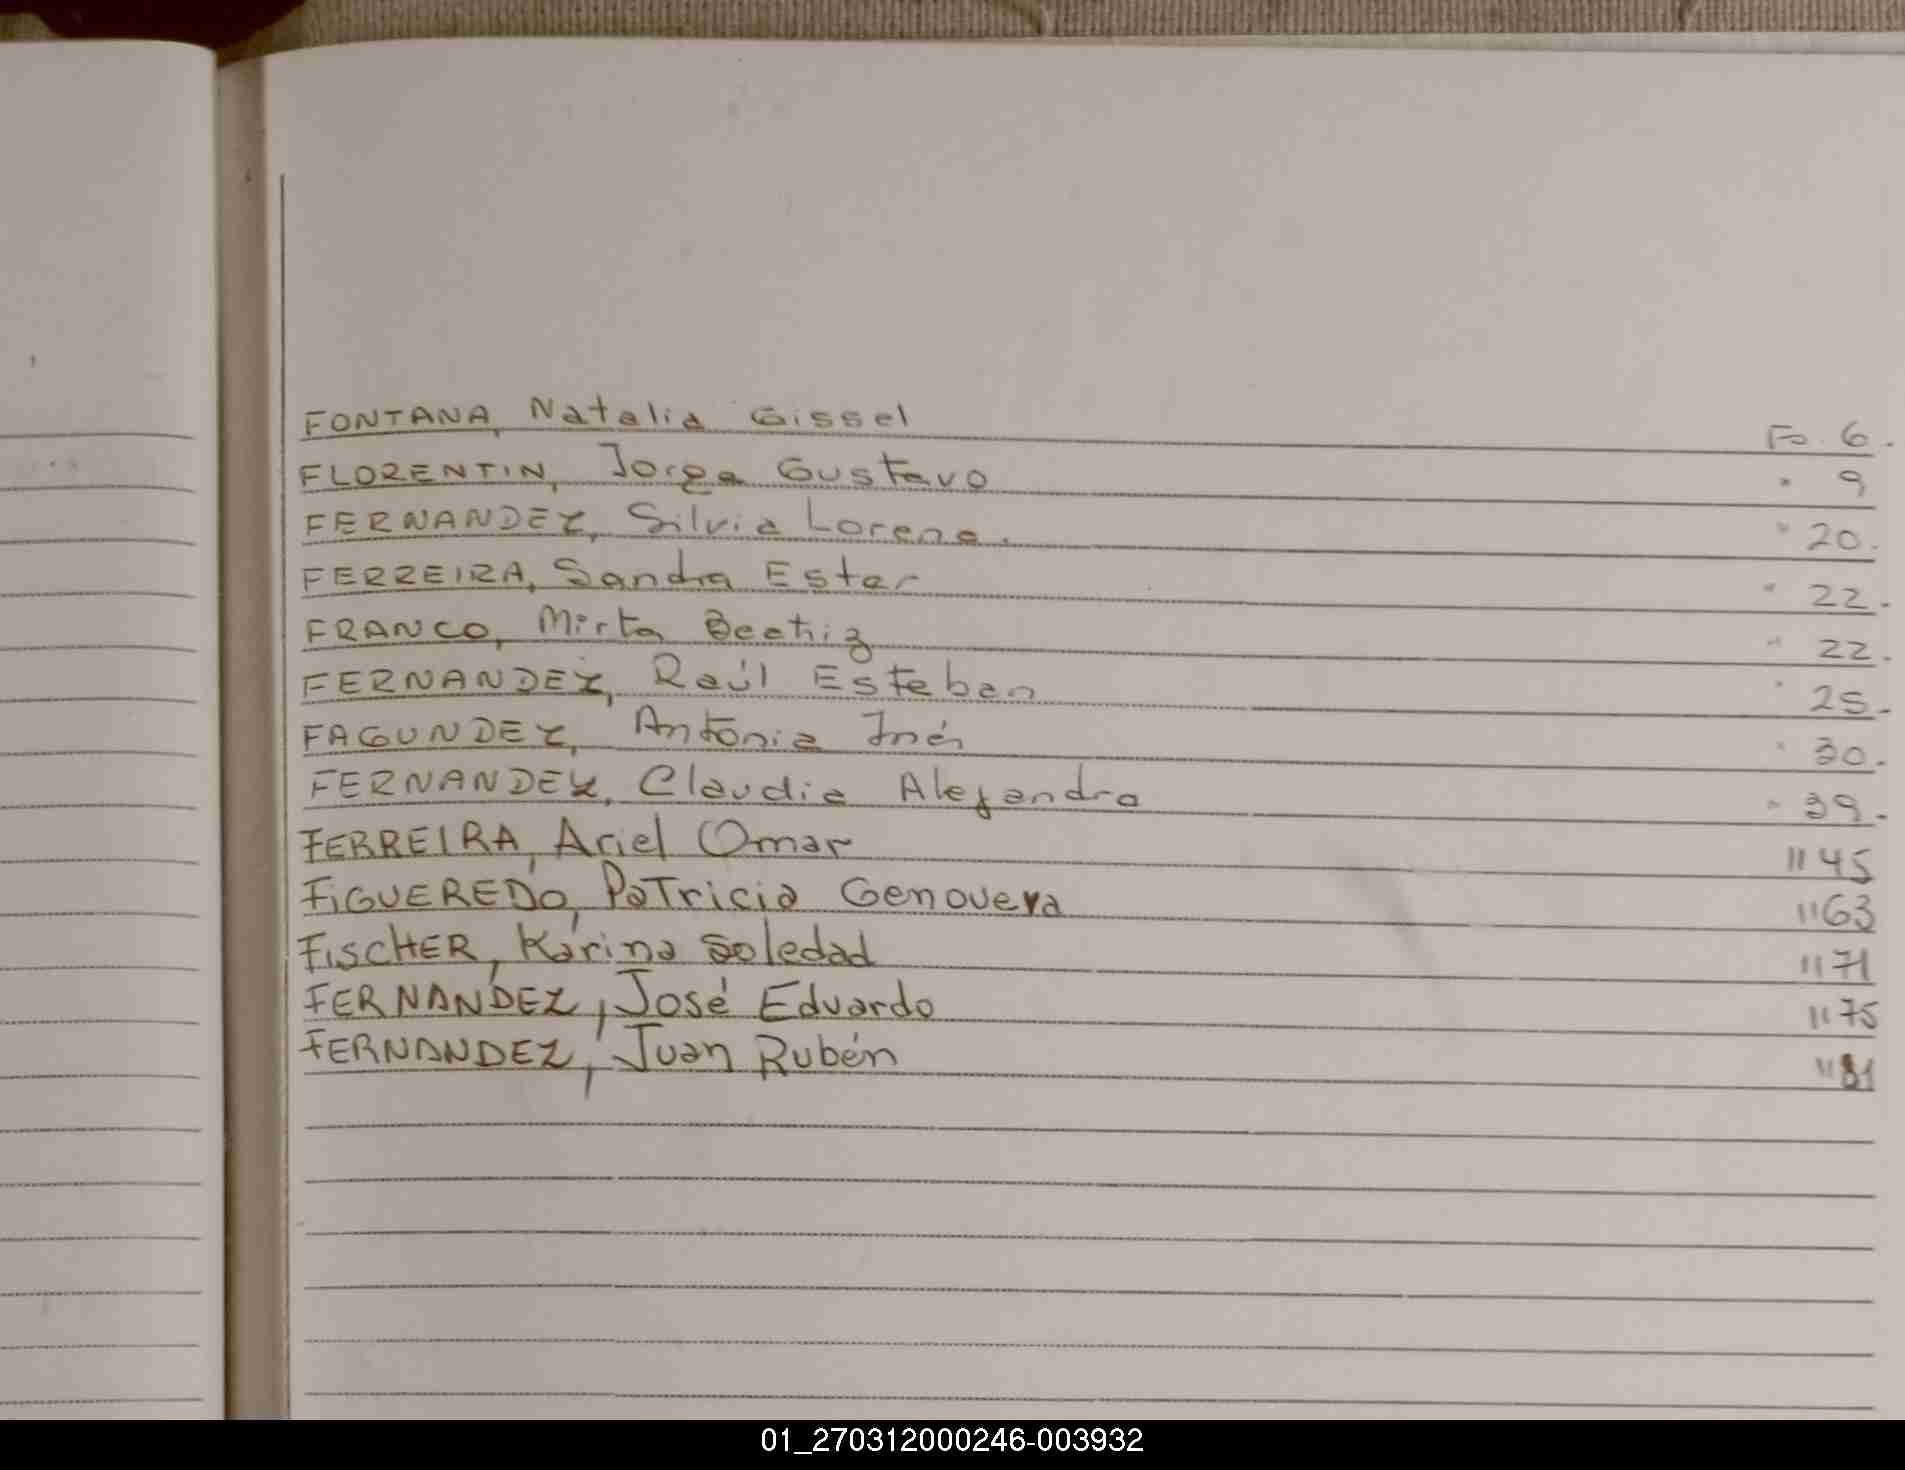 FONTANA, Natalia Gissel Fo. 6.
FLORENTIN, Jorge Gustavo " 9
FERNANDEZ, Silvia Lorena. " 20.
FERREIRA, Sandra Ester " 22.
FRANCO, Mirta Beatriz " 22.
FERNANDEZ, Raúl Esteban " 25.
FAGUNDEZ, Antonia Inés " 30.
FERNANDEZ, Claudia Alejandra " 39.
FERREIRA, Ariel Omar " 45
FIGUEREDO, Patricia Genoveva " 63
FISCHER, Karina Soledad " 71
FERNANDEZ, José Eduardo " 75
FERNANDEZ, Juan Rubén " 81
01_270312000246-003932